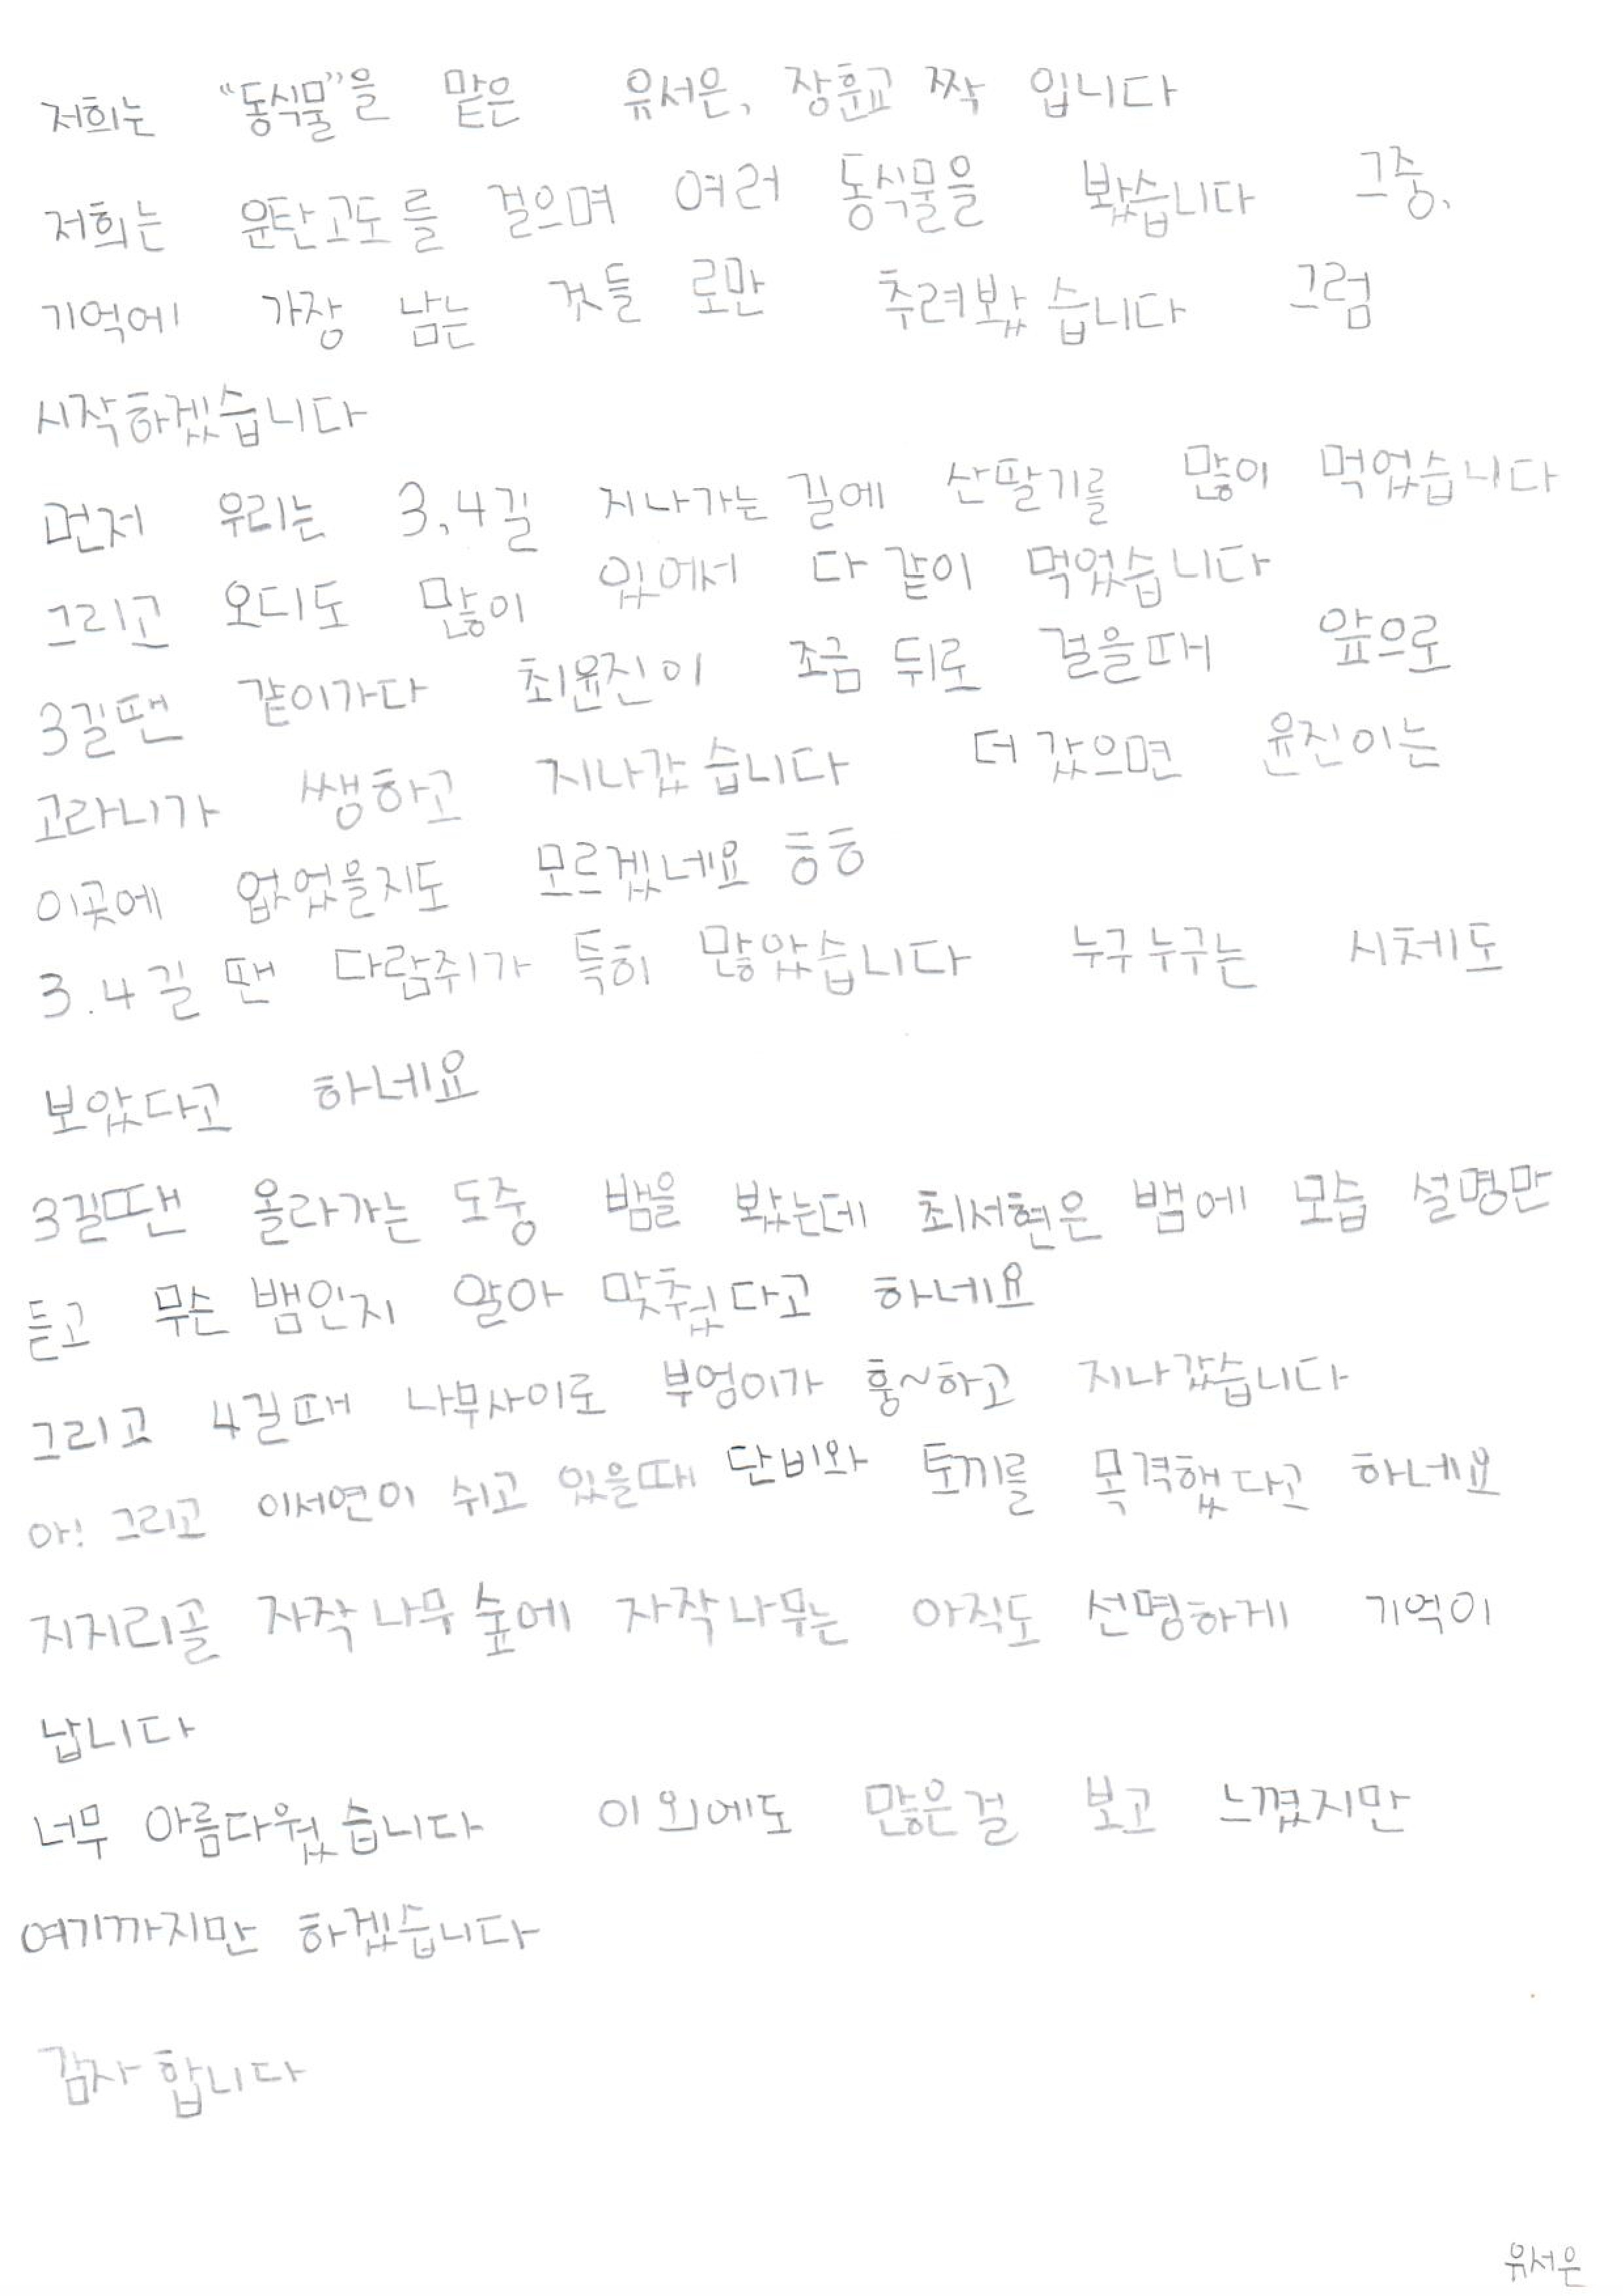 저희는 "동식물"을 맡은 유서은, 장훈교 짝 입니다
저희는 운탄고도를 걸으며 여러 동식물을 봤습니다 그중,
기억에 가장 남는 것들 로만 추려봤습니다 그럼
시작하겠습니다
먼저 우리는 3,4길 지나가는 길에 산딸기를 많이 먹었습니다
그리고 오디도 많이 있어서 다 같이 먹었습니다
3길땐 같이가다 최윤진이 조금 뒤로 걸을때 앞으로
고라니가 쌩하고 지나갔습니다 더 갔으면 윤진이는
이곳에 없었을지도 모르겠네요 ㅎㅎ
3.4길 땐 다람쥐가 특히 많았습니다 누구누구는 시체도
보았다고 하네요
3길땐 올라가는 도중 뱀을 봤는데 최서현은 뱀에 모습 설명만
듣고 무슨 뱀인지 알아 맞췄다고 하네요
그리고 4길때 나무사이로 부엉이가 훙~하고 지나갔습니다
아! 그리고 이서연이 쉬고 있을때 단비와 토끼를 목격했다고 하네요
지지리골 자작나무 숲에 자작나무는 아직도 선명하게 기억이
납니다
너무 아름다웠습니다 이 외에도 많은걸 보고 느꼈지만
여기까지만 하겠습니다
감사합니다
유서은